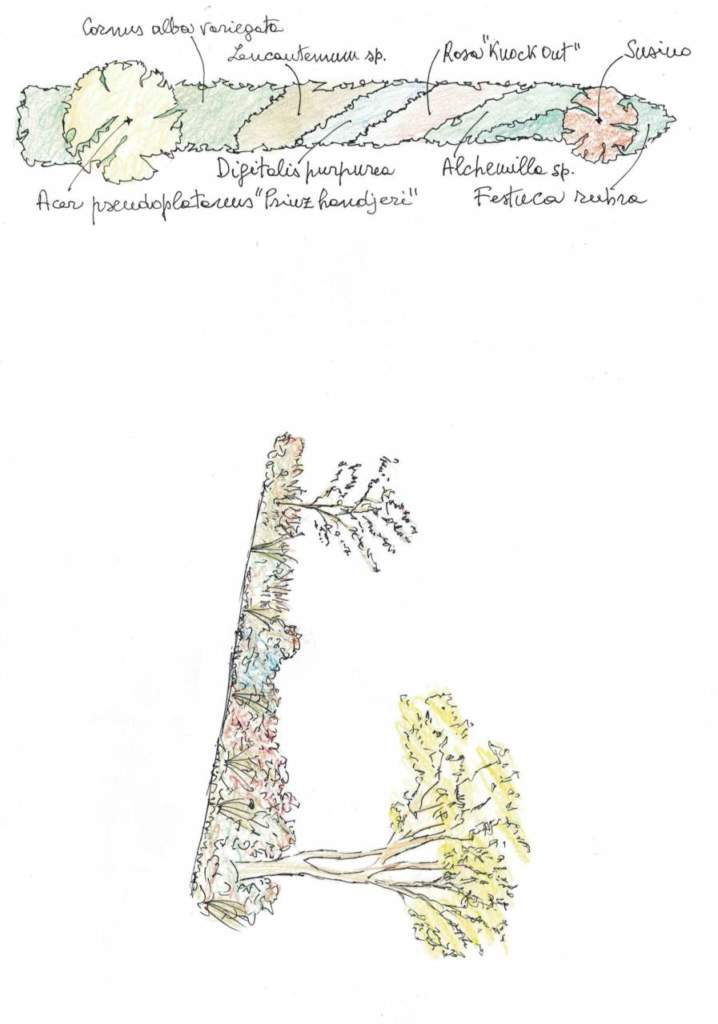 Cornus alba variegata
Leucantemum sp.
Rosa "Knock Out"
Susino
Digitalis purpurea
Alchemilla sp.
Festuca rubra
Acer pseudoplatanus "Prinz handjeri"